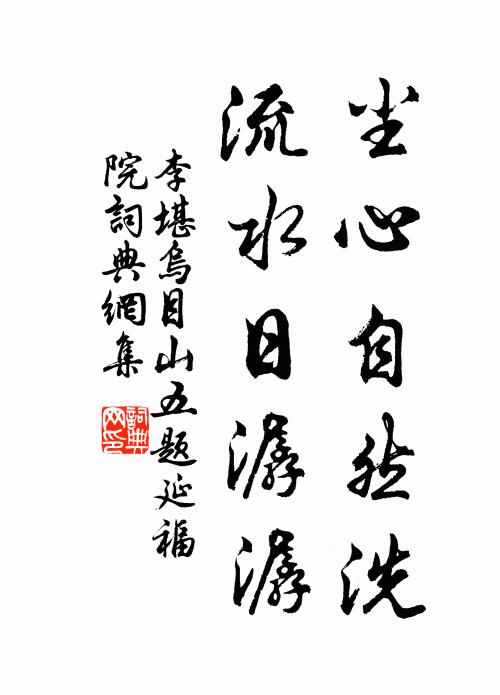 尘心自然洗
流水日潺潺
李堪烏目山五題延福
院詞典網集
詞典
网印